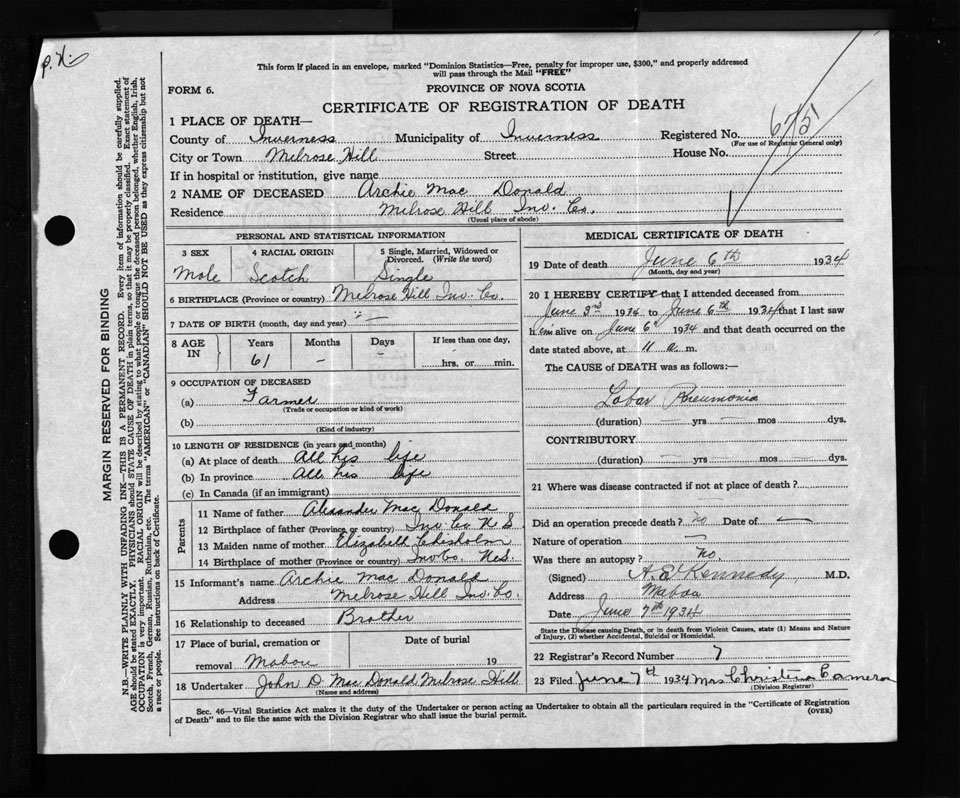 P.N.
This form if placed in an envelope, marked "Dominion Statistics—Free, penalty for improper use, $300," and properly addressed
will pass through the Mail "FREE"
FORM 6.
PROVINCE OF NOVA SCOTIA
CERTIFICATE OF REGISTRATION OF DEATH
1 PLACE OF DEATH—
County of Inverness Municipality of Inverness Registered No. 675
(For use of Registrar General only)
City or Town Melrose Hill Street House No.
If in hospital or institution, give name
2 NAME OF DECEASED Archie Mac Donald
Residence Melrose Hill Inv. Co.
(Usual place of abode)
PERSONAL AND STATISTICAL INFORMATION
3 SEX 4 RACIAL ORIGIN 5 Single, Married, Widowed or
Divorced. (Write the word)
Male Scotch Single
6 BIRTHPLACE (Province or country) Melrose Hill Inv. Co.
7 DATE OF BIRTH (month, day and year) —
8 AGE IN Years Months Days If less than one day,
61 – – hrs. or min.
9 OCCUPATION OF DECEASED
(a) Farmer
(Trade or occupation or kind of work)
(b)
(Kind of industry)
10 LENGTH OF RESIDENCE (in years and months)
(a) At place of death All his life
(b) In province All his life
(c) In Canada (if an immigrant)
Parents
11 Name of father Alexander Mac Donald
12 Birthplace of father (Province or country) Inv. Co N S
13 Maiden name of mother Elizabeth Chisholm
14 Birthplace of mother (Province or country) Inv Co. N.S.
15 Informant's name Archie Mac Donald
Address Melrose Hill Inv. Co.
16 Relationship to deceased Brother
17 Place of burial, cremation or Date of burial
removal Mabou 19
18 Undertaker John D. Mac Donald Melrose Hill
(Name and address)
MEDICAL CERTIFICATE OF DEATH
19 Date of death June 6th 1934
(Month, day and year)
20 I HEREBY CERTIFY that I attended deceased from
June 3rd 1934 to June 6th 1934 that I last saw
him alive on June 6th 1934 and that death occurred on the
date stated above, at 11 a. m.
The CAUSE of DEATH was as follows:—
Lobar Pneumonia
(duration) — yrs — mos — dys.
CONTRIBUTORY
(duration) — yrs — mos — dys.
21 Where was disease contracted if not at place of death?
Did an operation precede death? no Date of —
Nature of operation —
Was there an autopsy? No.
(Signed) A. E. Kennedy M.D.
Address Mabou
Date June 7th 1934
State the Disease causing Death, or in death from Violent Causes, state (1) Means and Nature
of Injury, (2) whether Accidental, Suicidal or Homicidal.
22 Registrar's Record Number 7
23 Filed June 7th 1934 Mrs Christina Cameron
(Division Registrar)
Sec. 46—Vital Statistics Act makes it the duty of the Undertaker or person acting as Undertaker to obtain all the particulars required in the "Certificate of Registration
of Death" and to file the same with the Division Registrar who shall issue the burial permit. (OVER)
MARGIN RESERVED FOR BINDING
N.B.—WRITE PLAINLY WITH UNFADING INK—THIS IS A PERMANENT RECORD. Every item of information should be carefully supplied.
AGE should be stated EXACTLY. PHYSICIANS should STATE CAUSE OF DEATH in plain terms, so that it may be properly classified. Exact statement of
OCCUPATION is very important. RACIAL ORIGIN will be described by stating to what people or tongue the deceased person belonged, whether English, Irish,
Scotch, French, German, Russian, Ruthenian, etc. The terms "AMERICAN" or "CANADIAN" SHOULD NOT BE USED as they express citizenship but not
a race or people. See instructions on back of Certificate.